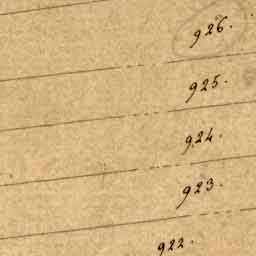 926.
925.
924.
923.
922.